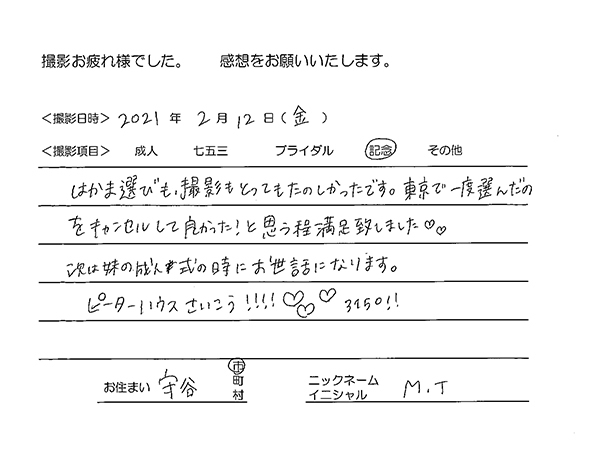 撮影お疲れ様でした。 感想をお願いいたします。
＜撮影日時＞ 2021 年 2 月 12 日（金）
＜撮影項目＞ 成人 七五三 ブライダル 記念 その他
はかま選びも、撮影もとってもたのしかったです。東京で一度選んだの
をキャンセルして良かった！と思う程満足致しました♡♡
次は妹の成人式の時にお世話になります。
ピーターハウスさいこう!!!!♡♡♡ 3150!!
お住まい 守谷 市町村 ニックネームイニシャル M.T